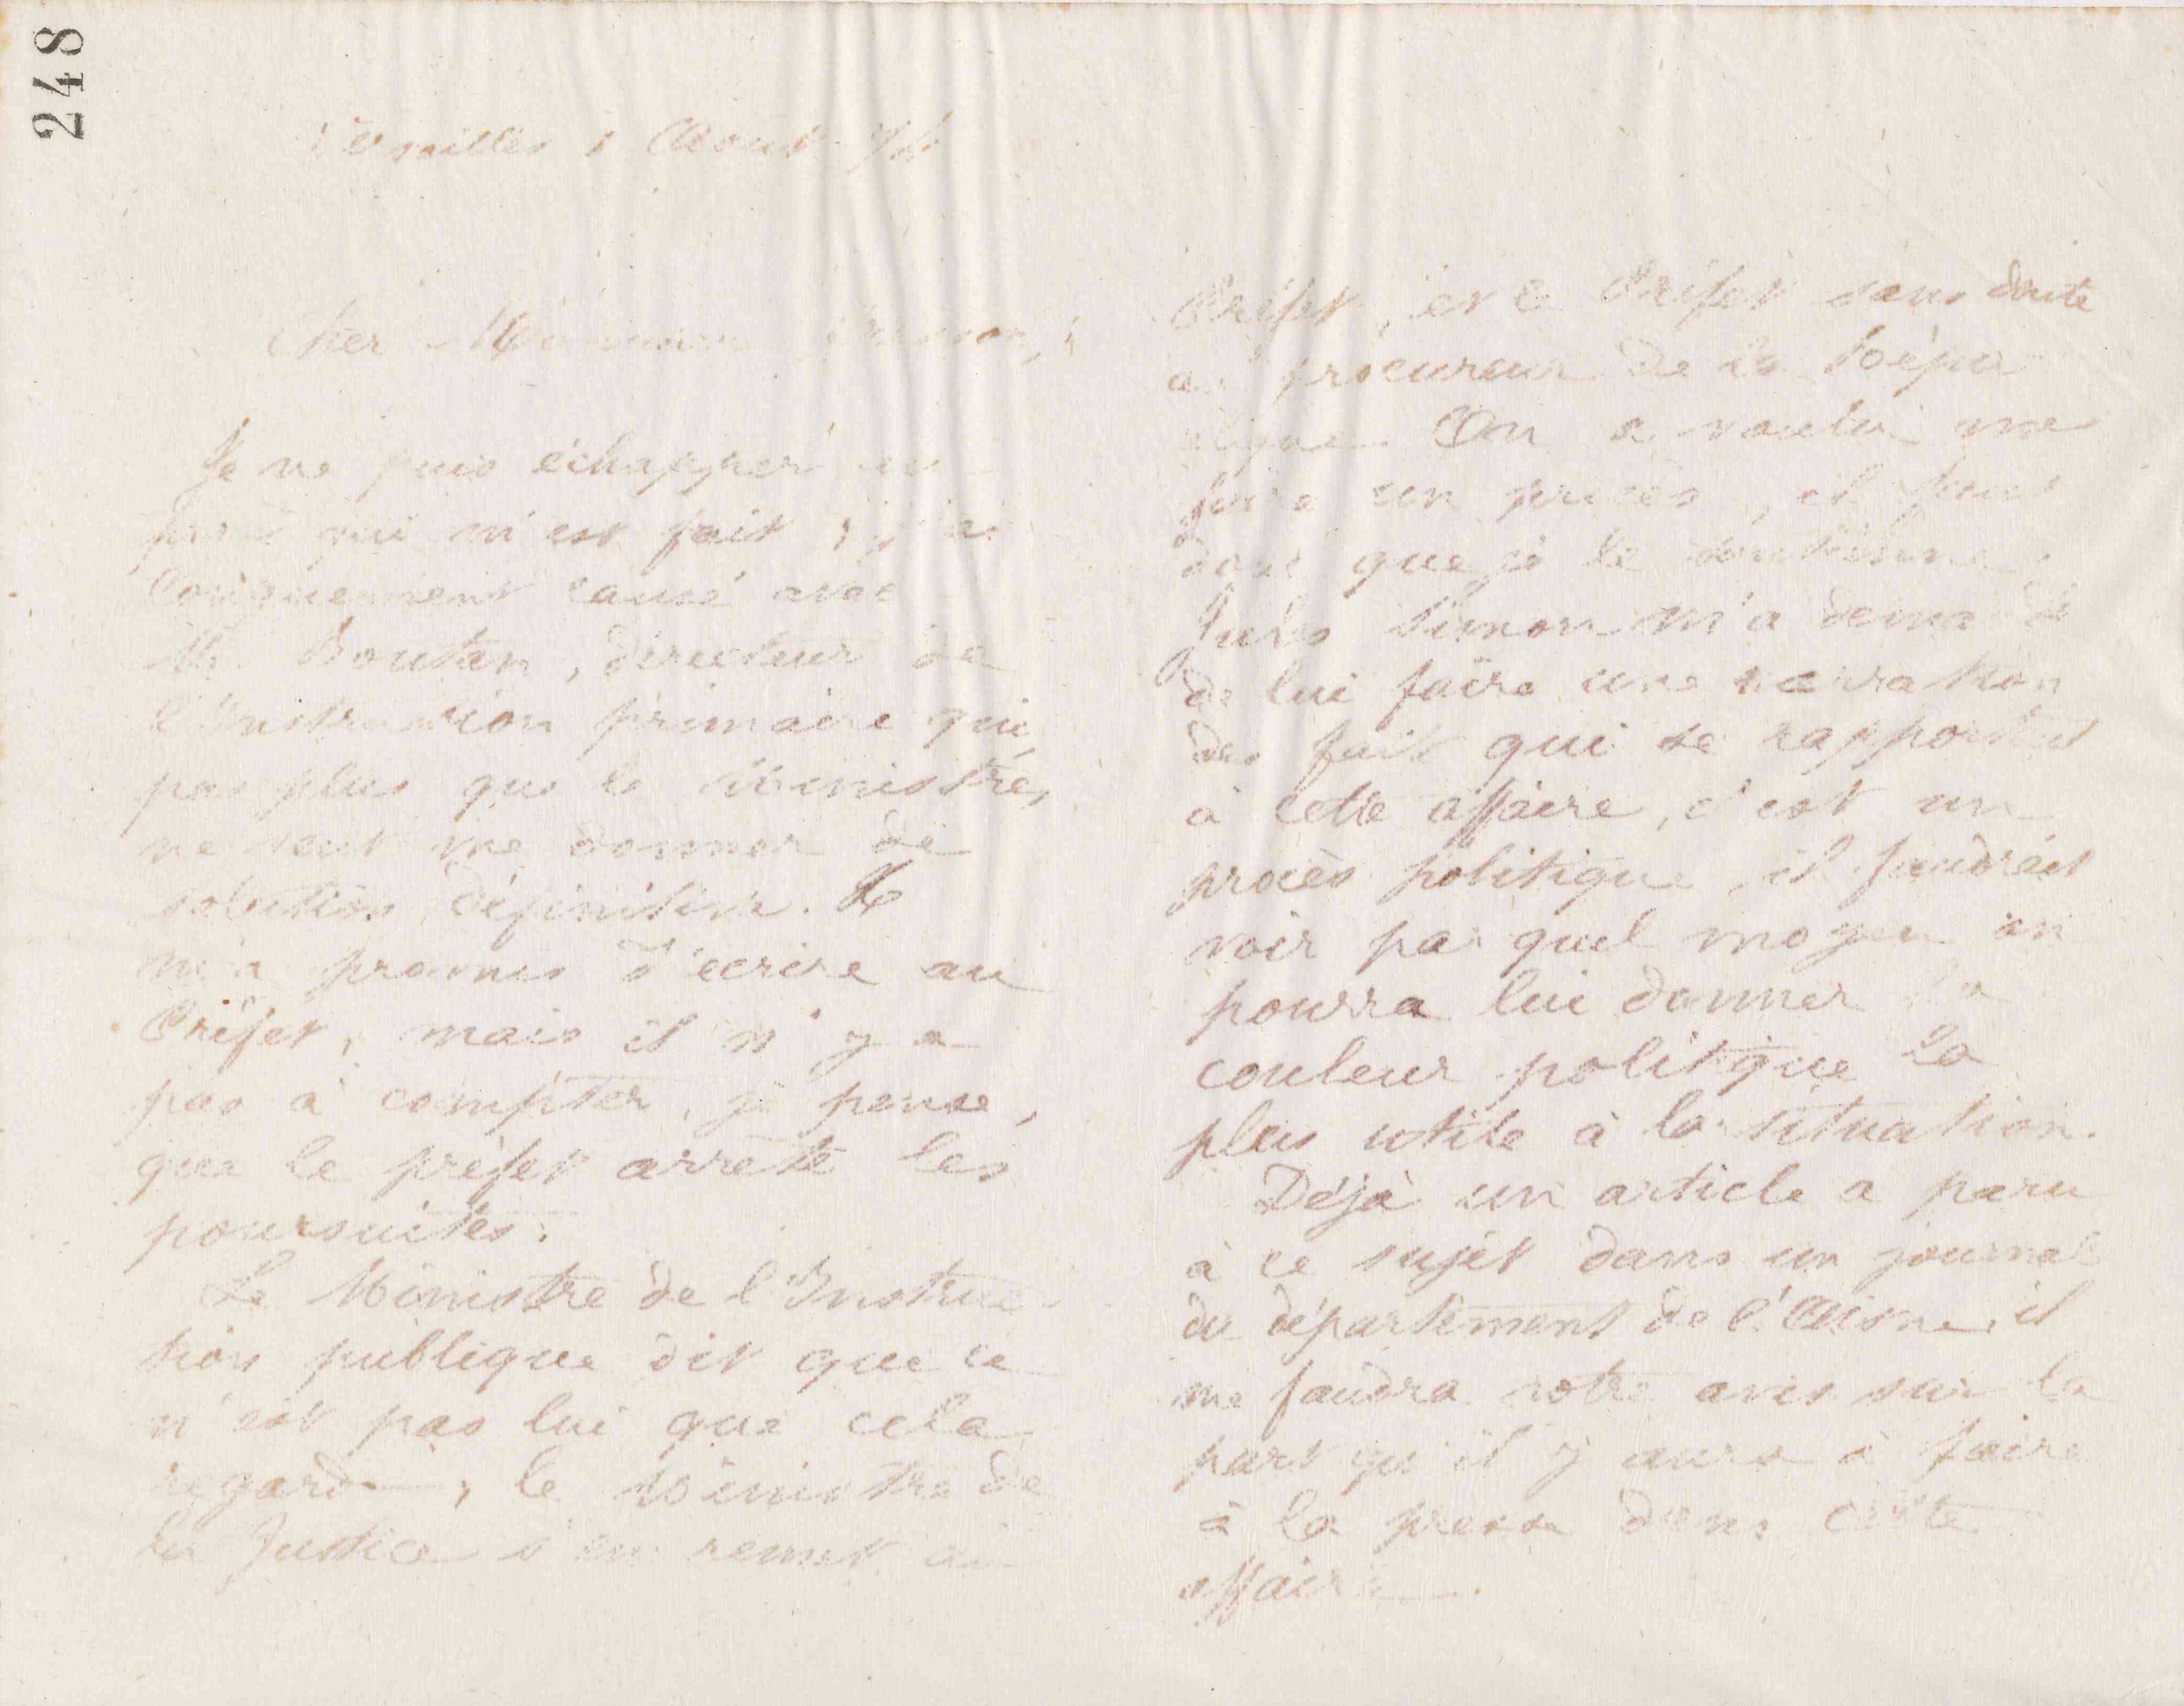 248
Versailles 1 Aout 74
Cher Monsieur
Je ne puis échapper au
procès qui m'est fait, j'ai
longuement causé avec
Mr Boutan, directeur de
l'Instruction primaire qui,
pas plus que le Ministre,
ne veut me donner de
solution définitive. Il
m'a promis d'écrire au
Préfet, mais il n'y a
pas à compter, je pense,
que le préfet arrête les
poursuites.
Le Ministre de l'Instruc-
tion publique dit que ce
n'est pas lui que cela
regarde, le Ministre de
la Justice s'en remet au
Préfet, et le Préfet sans doute
au procureur de la Répu
blique. On a voulu me
faire un procès, il faut
donc que je le soutienne.
Jules Simon m'a demandé
de lui faire une narration
des fait qui se rapportent
à cette affaire, c'est un
procès politique, il faudrait
voir par quel moyen on
pourra lui donner la
couleur politique la
plus utile à la situation.
Déjà un article a paru
à ce sujet dans un journal
du département de l'Aisne, il
me faudra votre avis sur la
part qu'il y aura à faire
à la presse dans cette
affaire.